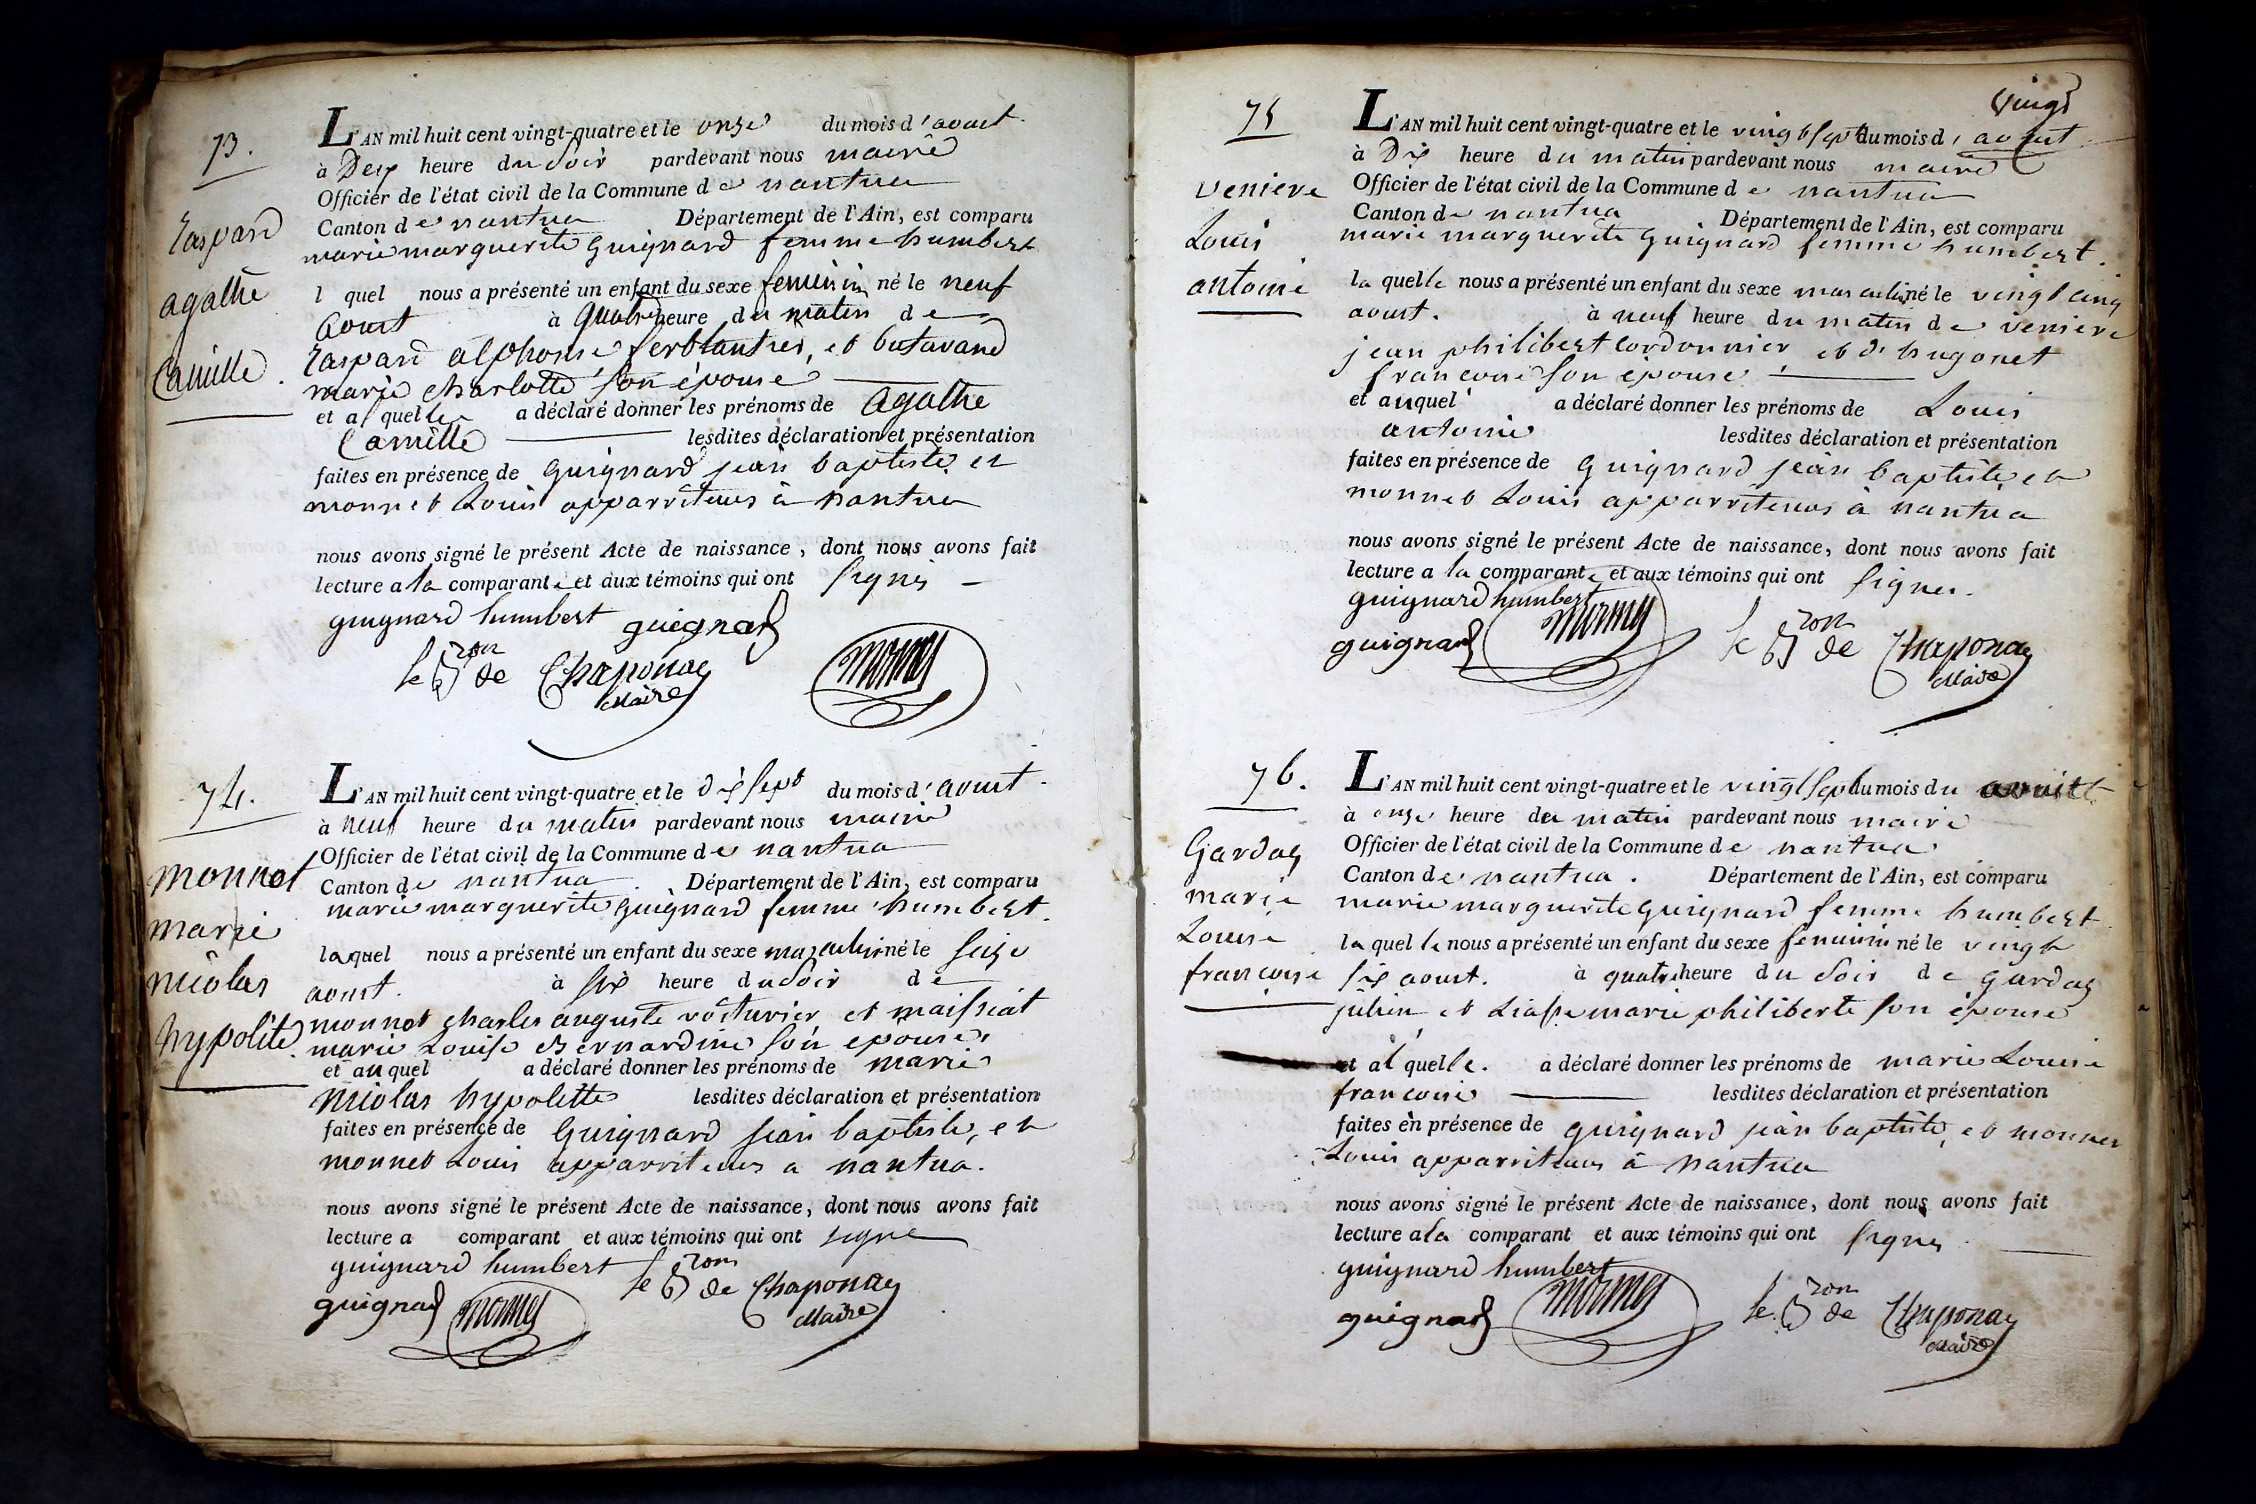 73.
Gaspard
agathe
Camille.
L'AN mil huit cent vingt-quatre et le onze du mois d'aoust
à Dix heure du Soir pardevant nous maire
Officier de l'état civil de la Commune de nantua
Canton de nantua Département de l'Ain, est comparu
marie marguerite Guignard femme humbert
l quel nous a présenté un enfant du sexe feminin né le neuf
Aoust à quatre heure du matin de
Gaspard alphonse ferblantier, et butavand
marie charlotte son épouse
et a l quelle a déclaré donner les prénoms de Agathe
Camille lesdites déclaration et présentation
faites en présence de Guignard jean baptiste et
monnet Louis apparriteurs à nantua
nous avons signé le présent Acte de naissance, dont nous avons fait
lecture a la comparante et aux témoins qui ont signés
guignard humbert guignard
le Bron de Chaponay
Maire
monnet
74.
monnot
marie
nicolas
hypolite
L'AN mil huit cent vingt-quatre et le dix sept du mois d'aoust
à neuf heure du matin pardevant nous maire
Officier de l'état civil de la Commune de nantua
Canton de nantua. Département de l'Ain, est comparu
marie marguerite guignard femme humbert.
laquel nous a présenté un enfant du sexe masculin né le seize
aoust. à six heure du soir de
monnot charles auguste voiturier et maissiat
marie Louise Bernardine son epouse,
et au quel a déclaré donner les prénoms de marie
nicolas hypolitte lesdites déclaration et présentation
faites en présence de Guignard jean baptiste, et
monnet Louis apparriteurs a nantua.
nous avons signé le présent Acte de naissance, dont nous avons fait
lecture a comparant et aux témoins qui ont signé
guignard humbert le Bron de Chaponay
Maire
guignard monnet
vingt
75
veniere
Louis
antoine
L'AN mil huit cent vingt-quatre et le vingt sept du mois d'aoust
à Dix heure du matin pardevant nous maire
Officier de l'état civil de la Commune de nantua
Canton de nantua. Département de l'Ain, est comparu
marie marguerite guignard femme humbert.
la quelle nous a présenté un enfant du sexe masculin né le vingt cinq
aoust. à neuf heure du matin de veniere
jean philibert cordonnier et d'hugonet
francoise son epouse
et auquel a déclaré donner les prénoms de Louis
antoine lesdites déclaration et présentation
faites en présence de guignard jean baptiste et
monnet Louis apparriteurs à nantua
nous avons signé le présent Acte de naissance, dont nous avons fait
lecture a la comparante et aux témoins qui ont signés.
guignard humbert
guignard monnet le Bron de Chaponay
Maire
76.
Gardaz
marie
Louise
francoise
L'AN mil huit cent vingt-quatre et le vingt sept du mois du aoust
à onze heure du matin pardevant nous maire
Officier de l'état civil de la Commune de nantua
Canton de nantua. Département de l'Ain, est comparu
marie marguerite Guignard femme humbert.
la quel le nous a présenté un enfant du sexe feminin né le vingt
six aoust. à quatre heure du soir de gardaz
julien et marie philiberte son épouse
et a l'quelle. a déclaré donner les prénoms de marie Louise
francoise lesdites déclaration et présentation
faites en présence de guignard jean baptiste, et monnet
Louis apparriteurs à nantua
nous avons signé le présent Acte de naissance, dont nous avons fait
lecture a la comparant et aux témoins qui ont signés
guignard humbert
guignard monnet le Bron de Chaponay
Maire